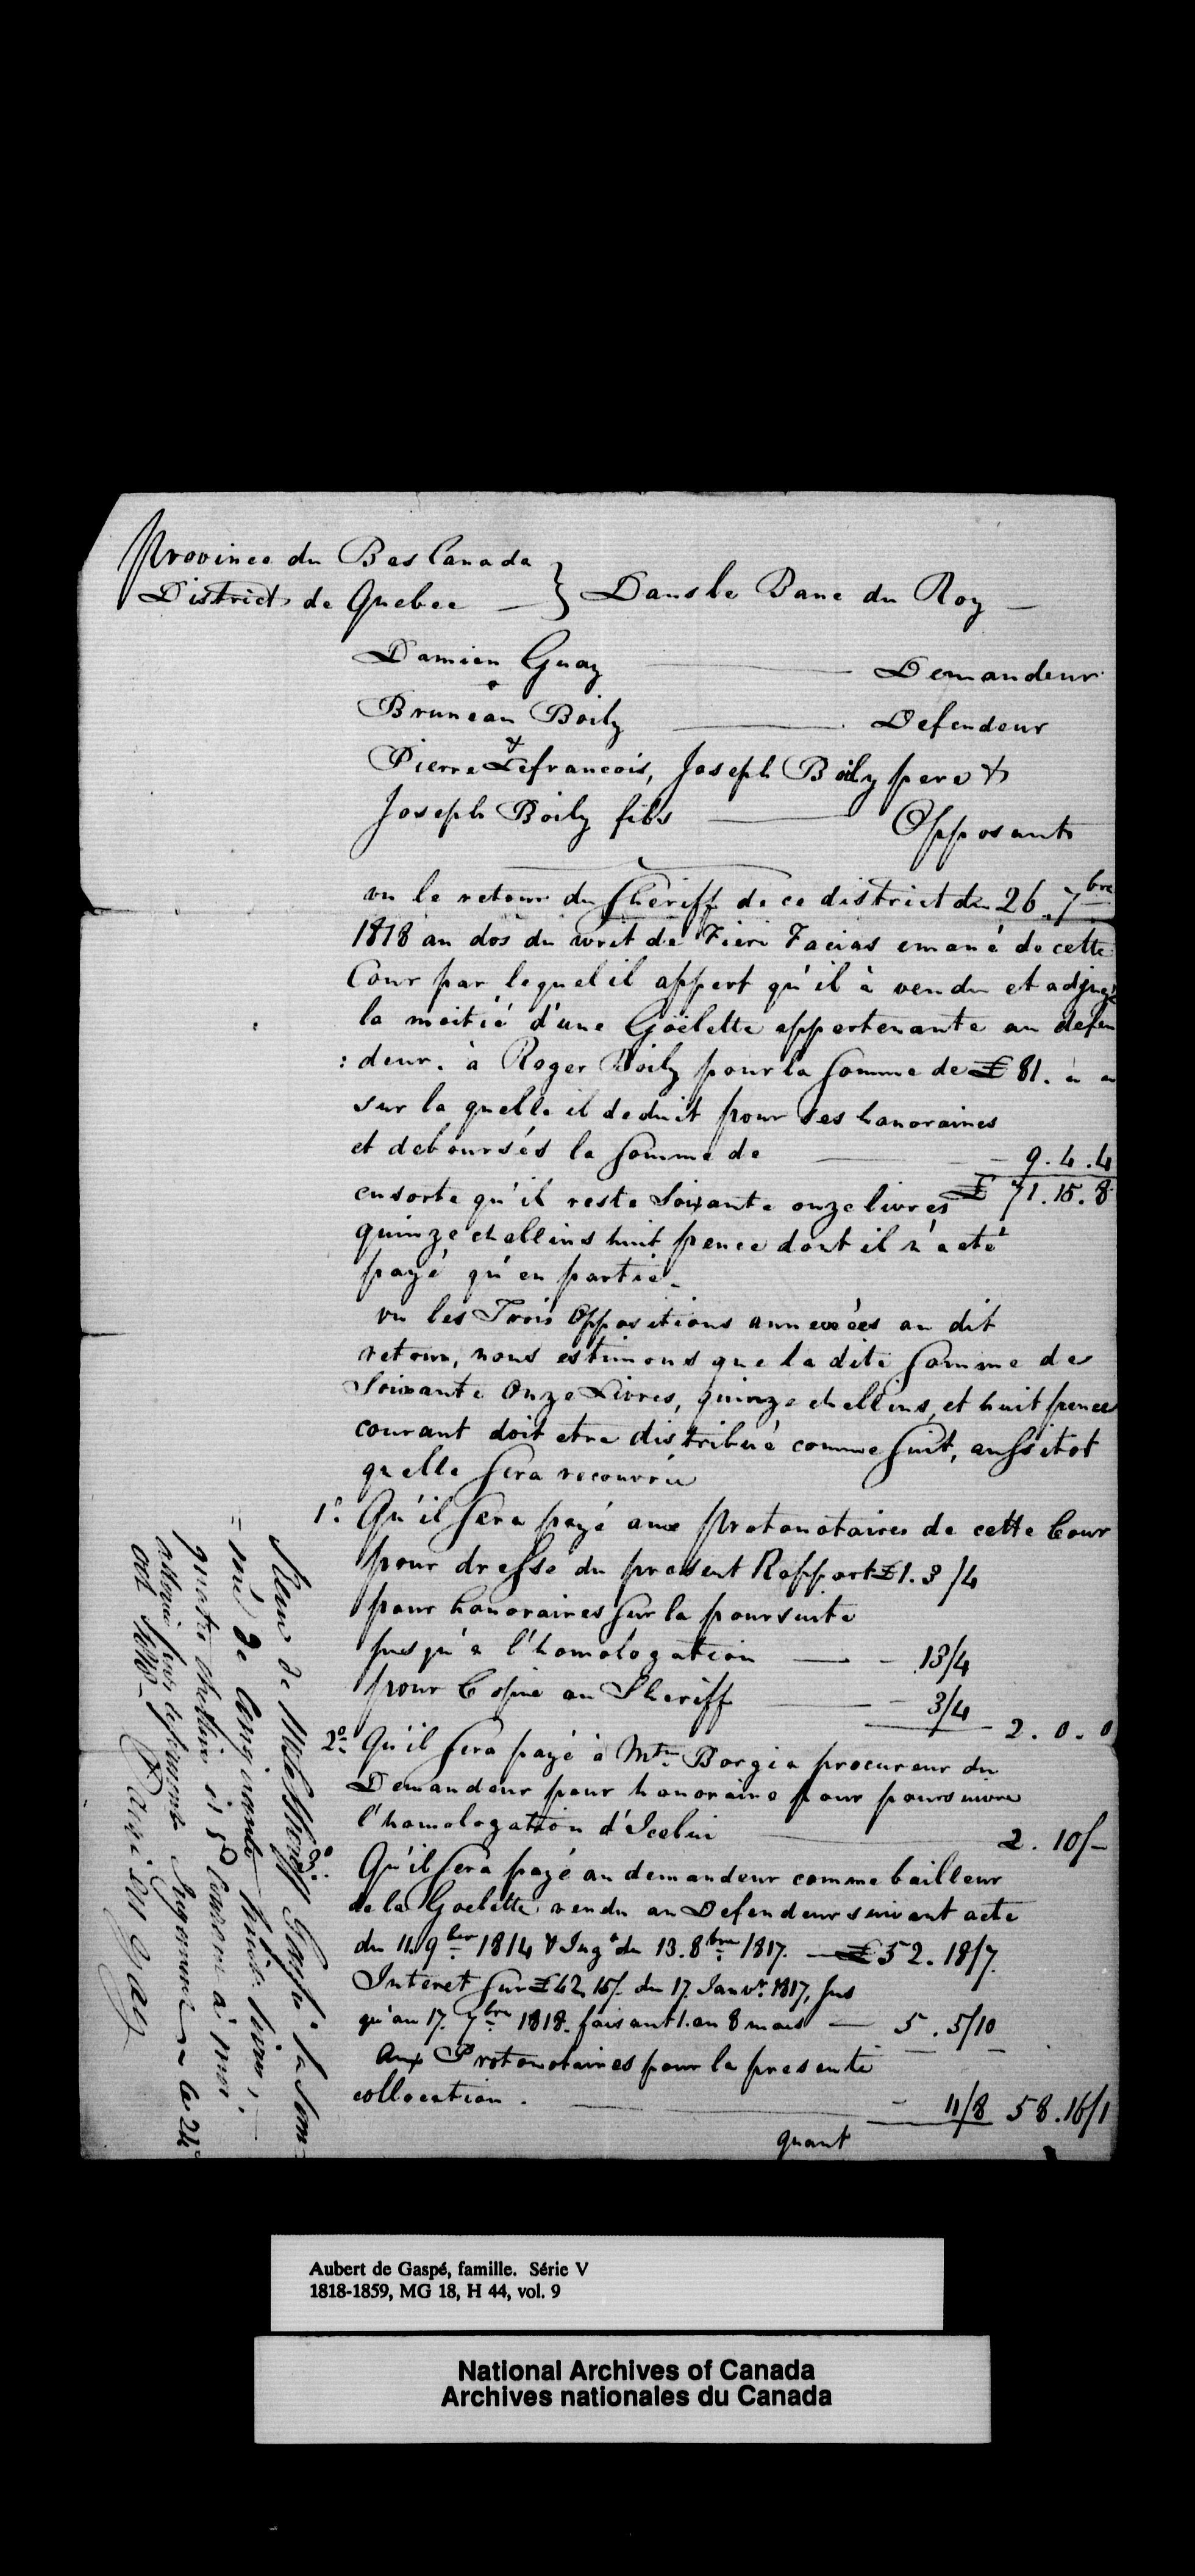 Province du Bas Canada
District de Quebec — } Dans le Banc du Roy —
Damien Guay — Demandeur
&
Bruneau Boily — Defendeur
&
Pierre Lefrancois, Joseph Boily pere &
Joseph Boily fils — Opposants
vu le retour du Sheriff de ce district du 26. 7bre
1818 au dos du writ de Fieri Facias emané de cette
Cour par lequel il appert qu'il à vendu et adjugé
la moitié d'une Goëlette appertenante au defen
: deur. à Roger Boily pour la somme de £ 81. " "
sur la quelle il deduit pour ses honoraires
et deboursés la somme de — 9. 4. 4
ensorte qu'il reste Soixante onze livres £ 71. 15. 8
quinze chellins huit pence dont il n'a eté
payé qu'en partie.
vu les Trois Oppositions annexées au dit
retour, nous estimons que la dite somme de
Soixante Onze Livres, quinze chellins, et huit pence
courant doit etre distribué comme suit, aussitot
quelle sera recouvrée
1º. Qu'il sera payé aux Protonotaires de cette Cour
pour dresse du present Rapport £1. 3/4
pour honoraires sur la poursuite
jusqu'a l'homologation — 13/4
pour Copie au Sheriff — 3/4
2. 0. 0
2º. Qu'il sera payé à Mtre Borgia procureur du
Demandeur pour honoraire pour poursuivre
l'homologation d'Icelui — 2. 10/-
3º. Qu'il sera payé au demandeur comme bailleur
de la Goelette vendu au Defendeur suivant acte
du 11. 9ber 1814 & Jugt du 13. 8bre 1817. — £52. 18/7.
Interet sur £42. 15/. du 17. Janvr. 1817, jus
qu'au 17. 7bre 1818. faisant 1. an 8 mois — 5. 5/10
Aux Protonotaires pour la presente
collocation. — 11/8 58. 16/1
quant
Reçu de Mr le Sheriff Gaspé la som
= me de Cinquante huit livres,
quatre chellins et 5d courant à moi
alloué par le present Jugement ce 24
oct 1818 — Damien Guay
Aubert de Gaspé, famille. Série V
1818-1859, MG 18, H 44, vol. 9
National Archives of Canada
Archives nationales du Canada